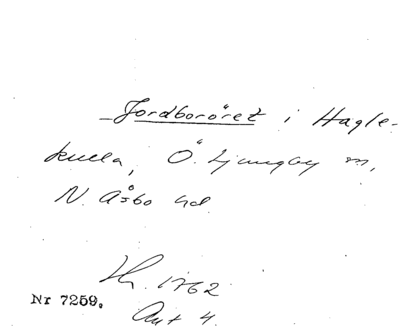 Jordboröret i Hagle-
kulla, Ö. Ljungby sn,
N. Åsbo hd.
Lh. 1762
Nr 7259.
Akt 4.